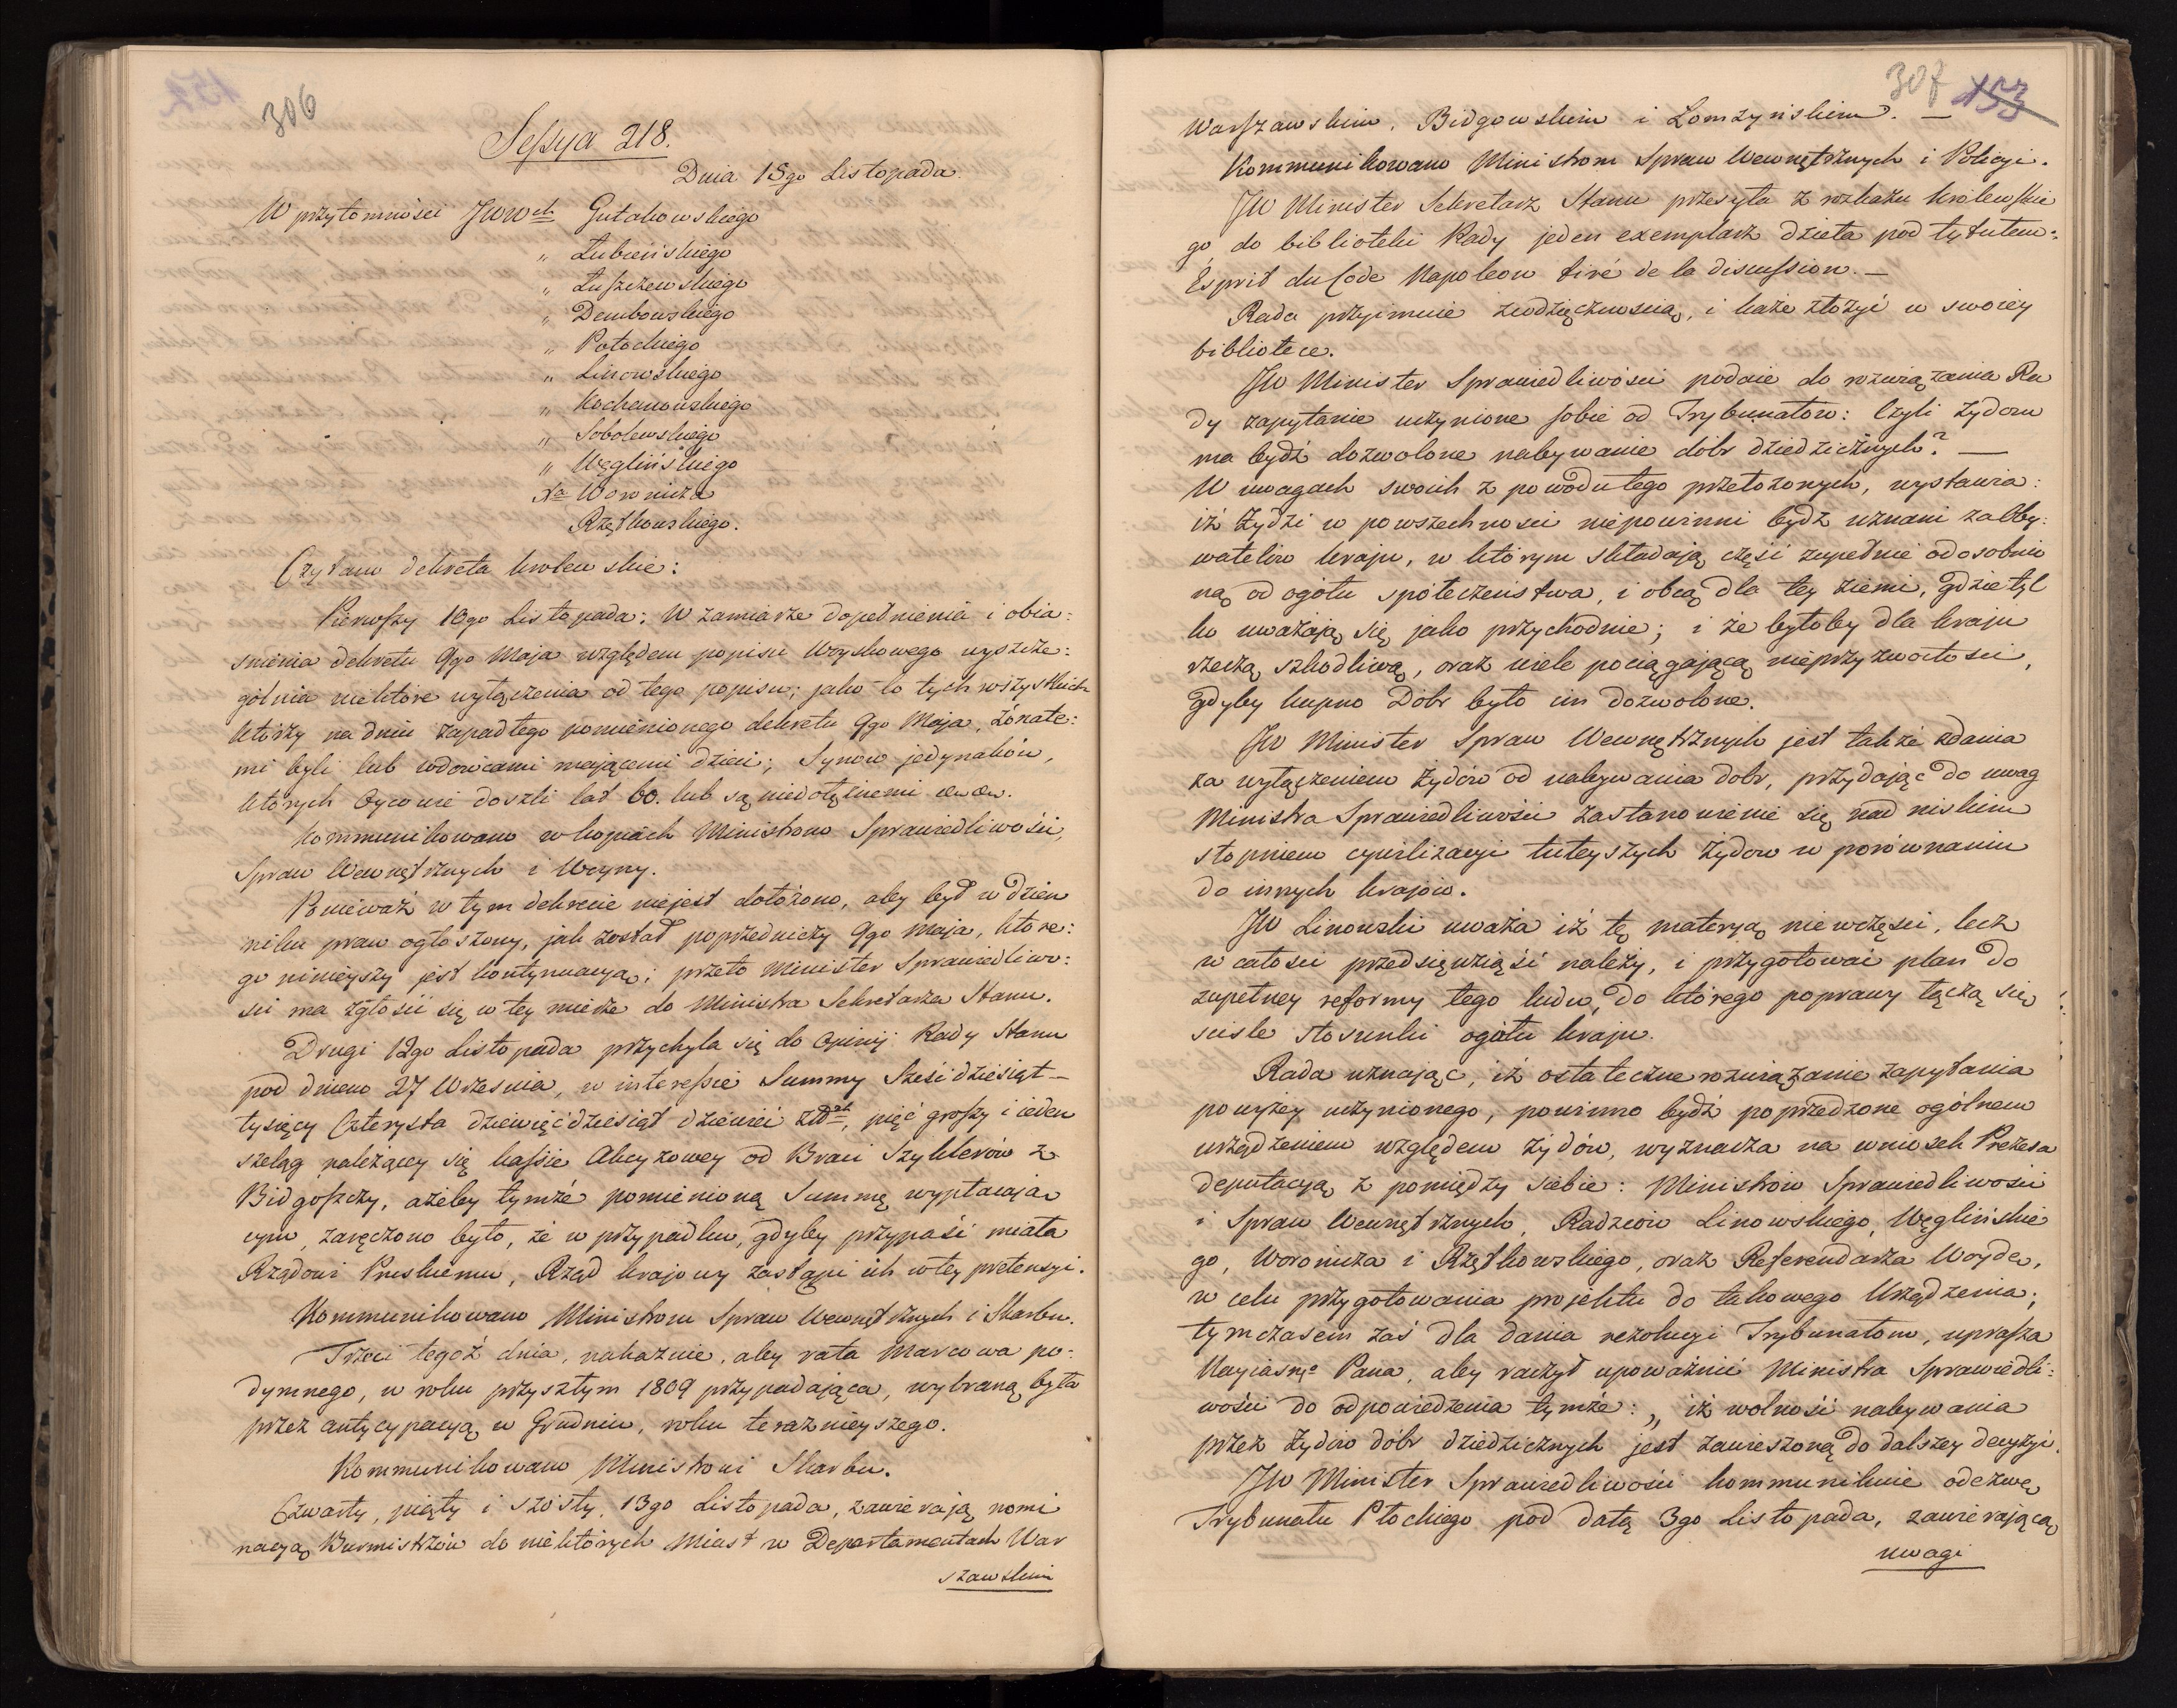 306
Sessya 218.
Dnia 15go Listopada.
W przytomności JWWch Gutakowskiego
„ Łubieńskiego
„ Łuszczewskiego
„ Dembowskiego
„ Potockiego
„ Linowskiego
„ Kochanowskiego
„ Sobolewskiego
„ Węglińskiego
Xa Woronicza
Rzętkowskiego.
Czytano dekreta krolewskie:
Pierwszy 10go Listopada: W zamiarze dopełnienia i obia:
snienia dekretu 9go Maja względem popisu Woyskowego wyszcze:
gólnia niektóre wyłączenia od tego popisu; jako to tych wszystkich
którzy na dniu zapadłego pomienionego dekretu 9go Maja, żónate:
mi byli lub wdowcami meiącemi dzieci; Synow jedynaków,
których Oycowie doszli lat 60. lub są niedołężnemi &c &c.
Kommunikowano w kopiach Ministrom Sprawiedliwości,
Spraw Wewnętrznych i Woyny.
Ponieważ w tym dekrecie niejest dołożono, aby był w Dzien
niku praw ogłoszony, jak został poprzedniczy 9go Maja, które:
go ninieyszy jest kontynuacyą; przeto Minister Sprawiedliwo:
sci ma zgłosić się w tey mierze do Ministra Sekretarza Stanu.
Drugi 12go Listopada przychyla się do Opinij Rady Stanu
pod dniem 27 Wrzesnia, w interessie Summy Sześćdziesiąt –
tysięcy Czterysta dziewięćdziesiąt dziewięć Złtch, pięć groszy i ieden
szeląg należącey się kassie Akcyzowey od Braci Szyklerów z
Bidgoszczy, ażeby tymże pomienioną Summę wypłacaią
cym, zaręczono było, że w przypadku, gdyby przypaść miała
Rządowi Pruskiemu, Rząd kraiowy zastąpi ich w tey pretensyi.
Kommunikowano Ministrom Spraw Wewnętrznych i Skarbu.
Trzeci tegoż dnia, nakazuie, aby rata Marcowa po:
dymnego, w roku przyszłym 1809 przypadająca, wybraną była
przez antycypacyą w Grudniu, roku teraznieyszego.
Kommunikowano Ministrowi Skarbu.
Czwarty, piąty i szósty, 13go Listopada, zawierają nomi
nacyą Burmistrzów do niektórych Miast w Departamentach War
szawskim
307 153
Warszawskim, Bidgowskim i Lomzyńskiem. —
Kommunikowano Ministrom Spraw Wewnętrznych i Policyi.
JW Minister Sekretarz Stanu przesyła z rozkazu królewskie
go do biblioteki Rady jeden exemplarz dzieła pod tytułem:
Esprit du Code Napoleon tiré de la discussion. —
Rada przyimuie zwdzięcznością, i każe złożyć w swoiey
bibliotece.
JW Minister Sprawiedliwości podaie do rozwiązania Ra
dy zapytanie uczynione sobie od Trybunałow: Czyli żydom
ma bydź dozwolone nabywanie dóbr dziedzicznych? —
W uwagach swoich z powodu tego przełożonych, wystawia:
iż Żydzi w powszechnosci niepowinni bydź uznani za Oby:
watelów kraju, w którym składają część zupełnie odosobnio
ną od ogółu społeczeństwa, i obcą dla tey ziemi, gdzie tyl
ko uważają się jako przychodnie; i że byłoby dla kraju
rzeczą szkodliwą, oraz wiele pociągającą nieprzyzwoitości,
gdyby kupno Dóbr było im dozwolone.
JW Minister Spraw Wewnętrznych jest także zdania
za wyłączeniem Żydów od nabywania dobr, przydając do uwag
Ministra Sprawiedliwości zastanowienie się nad niskim
stopniem cywilizacyi tuteyszych Żydow w porównaniu
do innych krajów.
JW Linowski uważa iż tę materyą nie wczęsci, lecz
w całosci przedsięwziąść należy, i przygotować plan do
zupełney reformy tego ludu, do którego poprawy łączą się
scisle stosunki ogółu kraju.
Rada uznając, iż ostateczne rozwiązanie zapytania
powyzey uczynionego, powinno bydź poprzedzone ogólnem
urządzeniem względem żydów, wyznacza na wniosek Prezesa
deputacyą z pomiędzy siebie: Ministrów Sprawiedliwości
i Spraw Wewnętrznych, Radzców Linowskiego, Węglińskie
go, Woronicza i Rzętkowskiego, oraz Referendarza Woydę,
w celu przygotowania projektu do takowego Urządzenia;
tymczasem zaś dla dania rezolucyi Trybunałom, uprasza
Nayiasngo Pana, aby raczył upoważnić Ministra Sprawiedli:
wości do odpowiedzenia tymże: „ iż wolność nabywania
przez Żydów dóbr dziedzicznych jest zawieszoną do dalszey decyzyi.
JW Minister Sprawiedliwości kommunikuie odezwę
Trybunału Płockiego pod datą 3go Listopada, zawierającą
uwagi